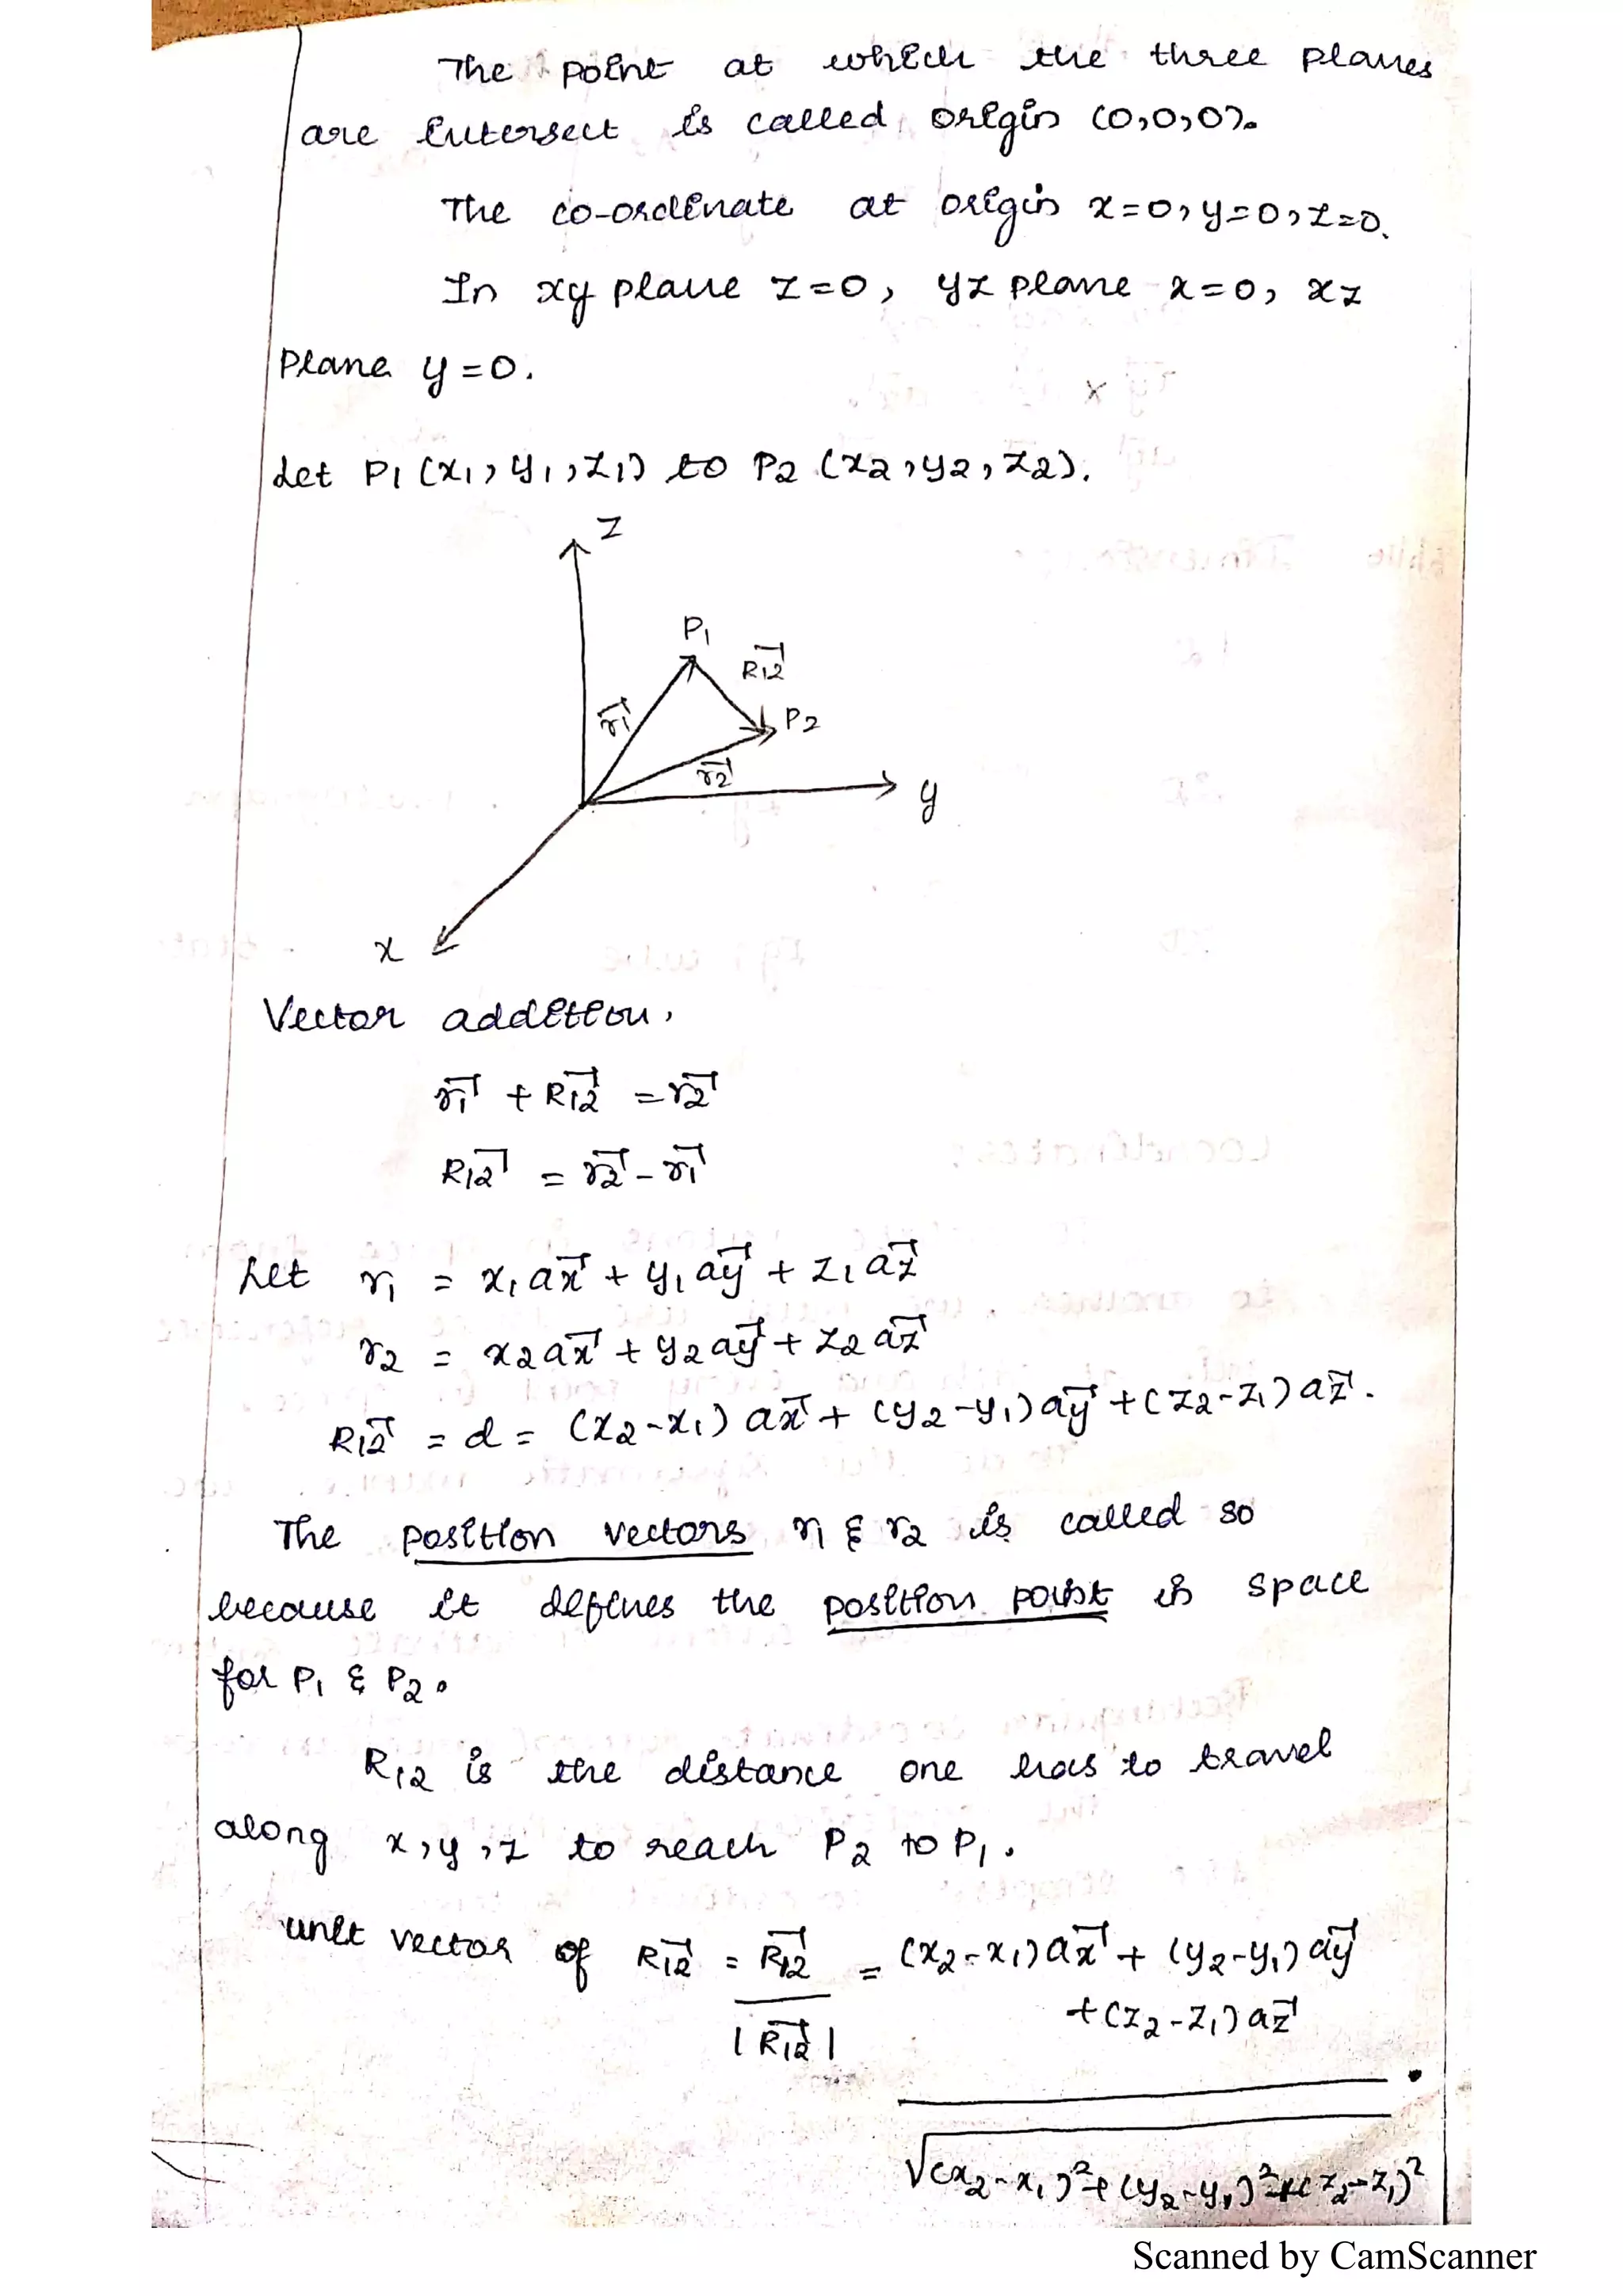 The point at which the three planes
are intersect is called origin (0,0,0).
The co-ordinate at origin x=0, y=0, z=0.
In xy plane z=0, yz plane x=0, xz
plane y=0.
Let P1 (x1, y1, z1) to P2 (x2, y2, z2).
z
P1
R12→
r1→
P2
r2→
y
x
Vector addition,
r1→ + R12→ = r2→
R12→ = r2→ - r1→
Let r1 = x1 ax→ + y1 ay→ + z1 az→
r2 = x2 ax→ + y2 ay→ + z2 az→
R12→ = d = (x2-x1) ax→ + (y2-y1) ay→ + (z2-z1) az→.
The position vectors r1 & r2 is called so
because it defines the position point in space
for P1 & P2.
R12 is the distance one has to travel
along x, y, z to reach P2 to P1.
unit vector of R12→ = R12→ / |R12→| = (x2-x1) ax→ + (y2-y1) ay→
+(z2-z1) az→
√(x2-x1)²+(y2-y1)²+(z2-z1)²
Scanned by CamScanner